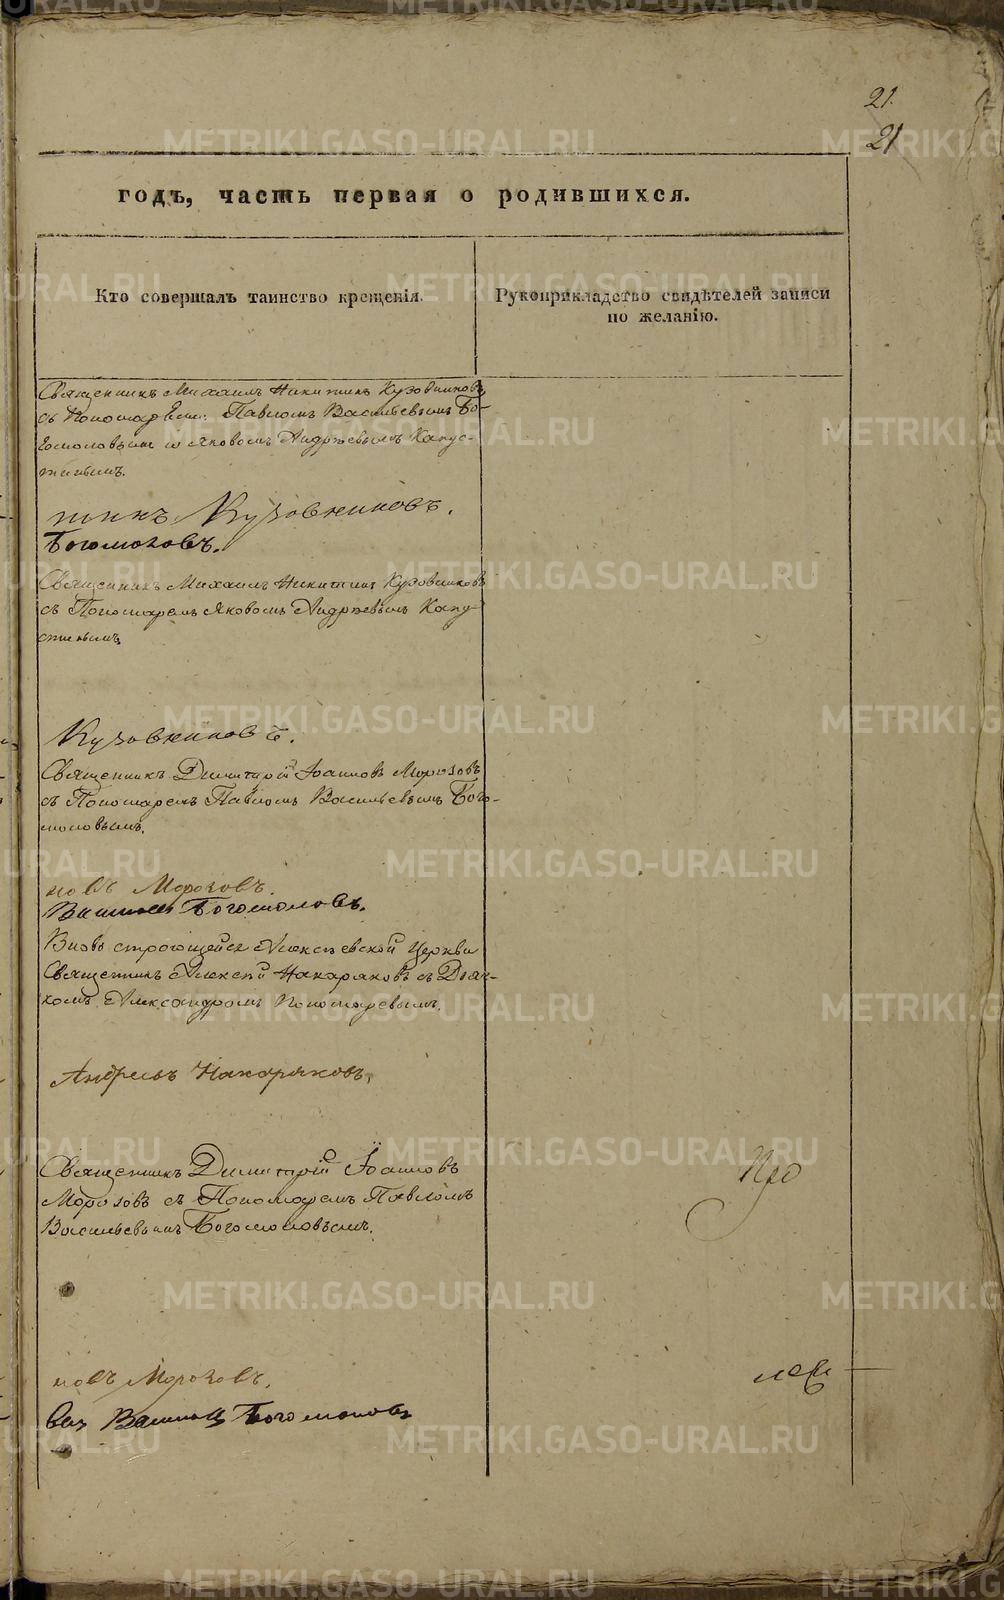 21.
21
годъ, часть первая о родившихся.
Кто совершалъ таинство крещенія.
Рукоприкладство свидѣтелей записи
по желанію.
Священникъ Михаилъ Никитинъ Кузовниковъ
съ Пономарями: Павломъ Васильевымъ Бо-
гомоловымъ и Яковомъ Андрѣевымъ Капус-
тинымъ.
тинъ Кузовниковъ.
Богомоловъ.
Священникъ Михаилъ Никитинъ Кузовниковъ
съ Пономаремъ Яковомъ Андрѣевымъ Капу-
стинымъ
Кузовниковъ.
Священникъ Димитрій Іоанновъ Морозовъ
съ Пономаремъ Павломъ Васильевымъ Бого-
моловымъ.
новъ Морозовъ.
Богомоловъ.
Вновь строющейся Алексѣевской Церкви
Священникъ Алексѣй Накаряковъ съ Дьяч-
комъ Александромъ Пономаревымъ.
Андреевъ Накаряковъ.
Священникъ Димитрій Іоанновъ
Морозовъ съ Пономаремъ Павломъ
Васильевымъ Богомоловымъ.
Про
новъ Морозовъ.
Богомоловъ
METRIKI.GASO-URAL.RU